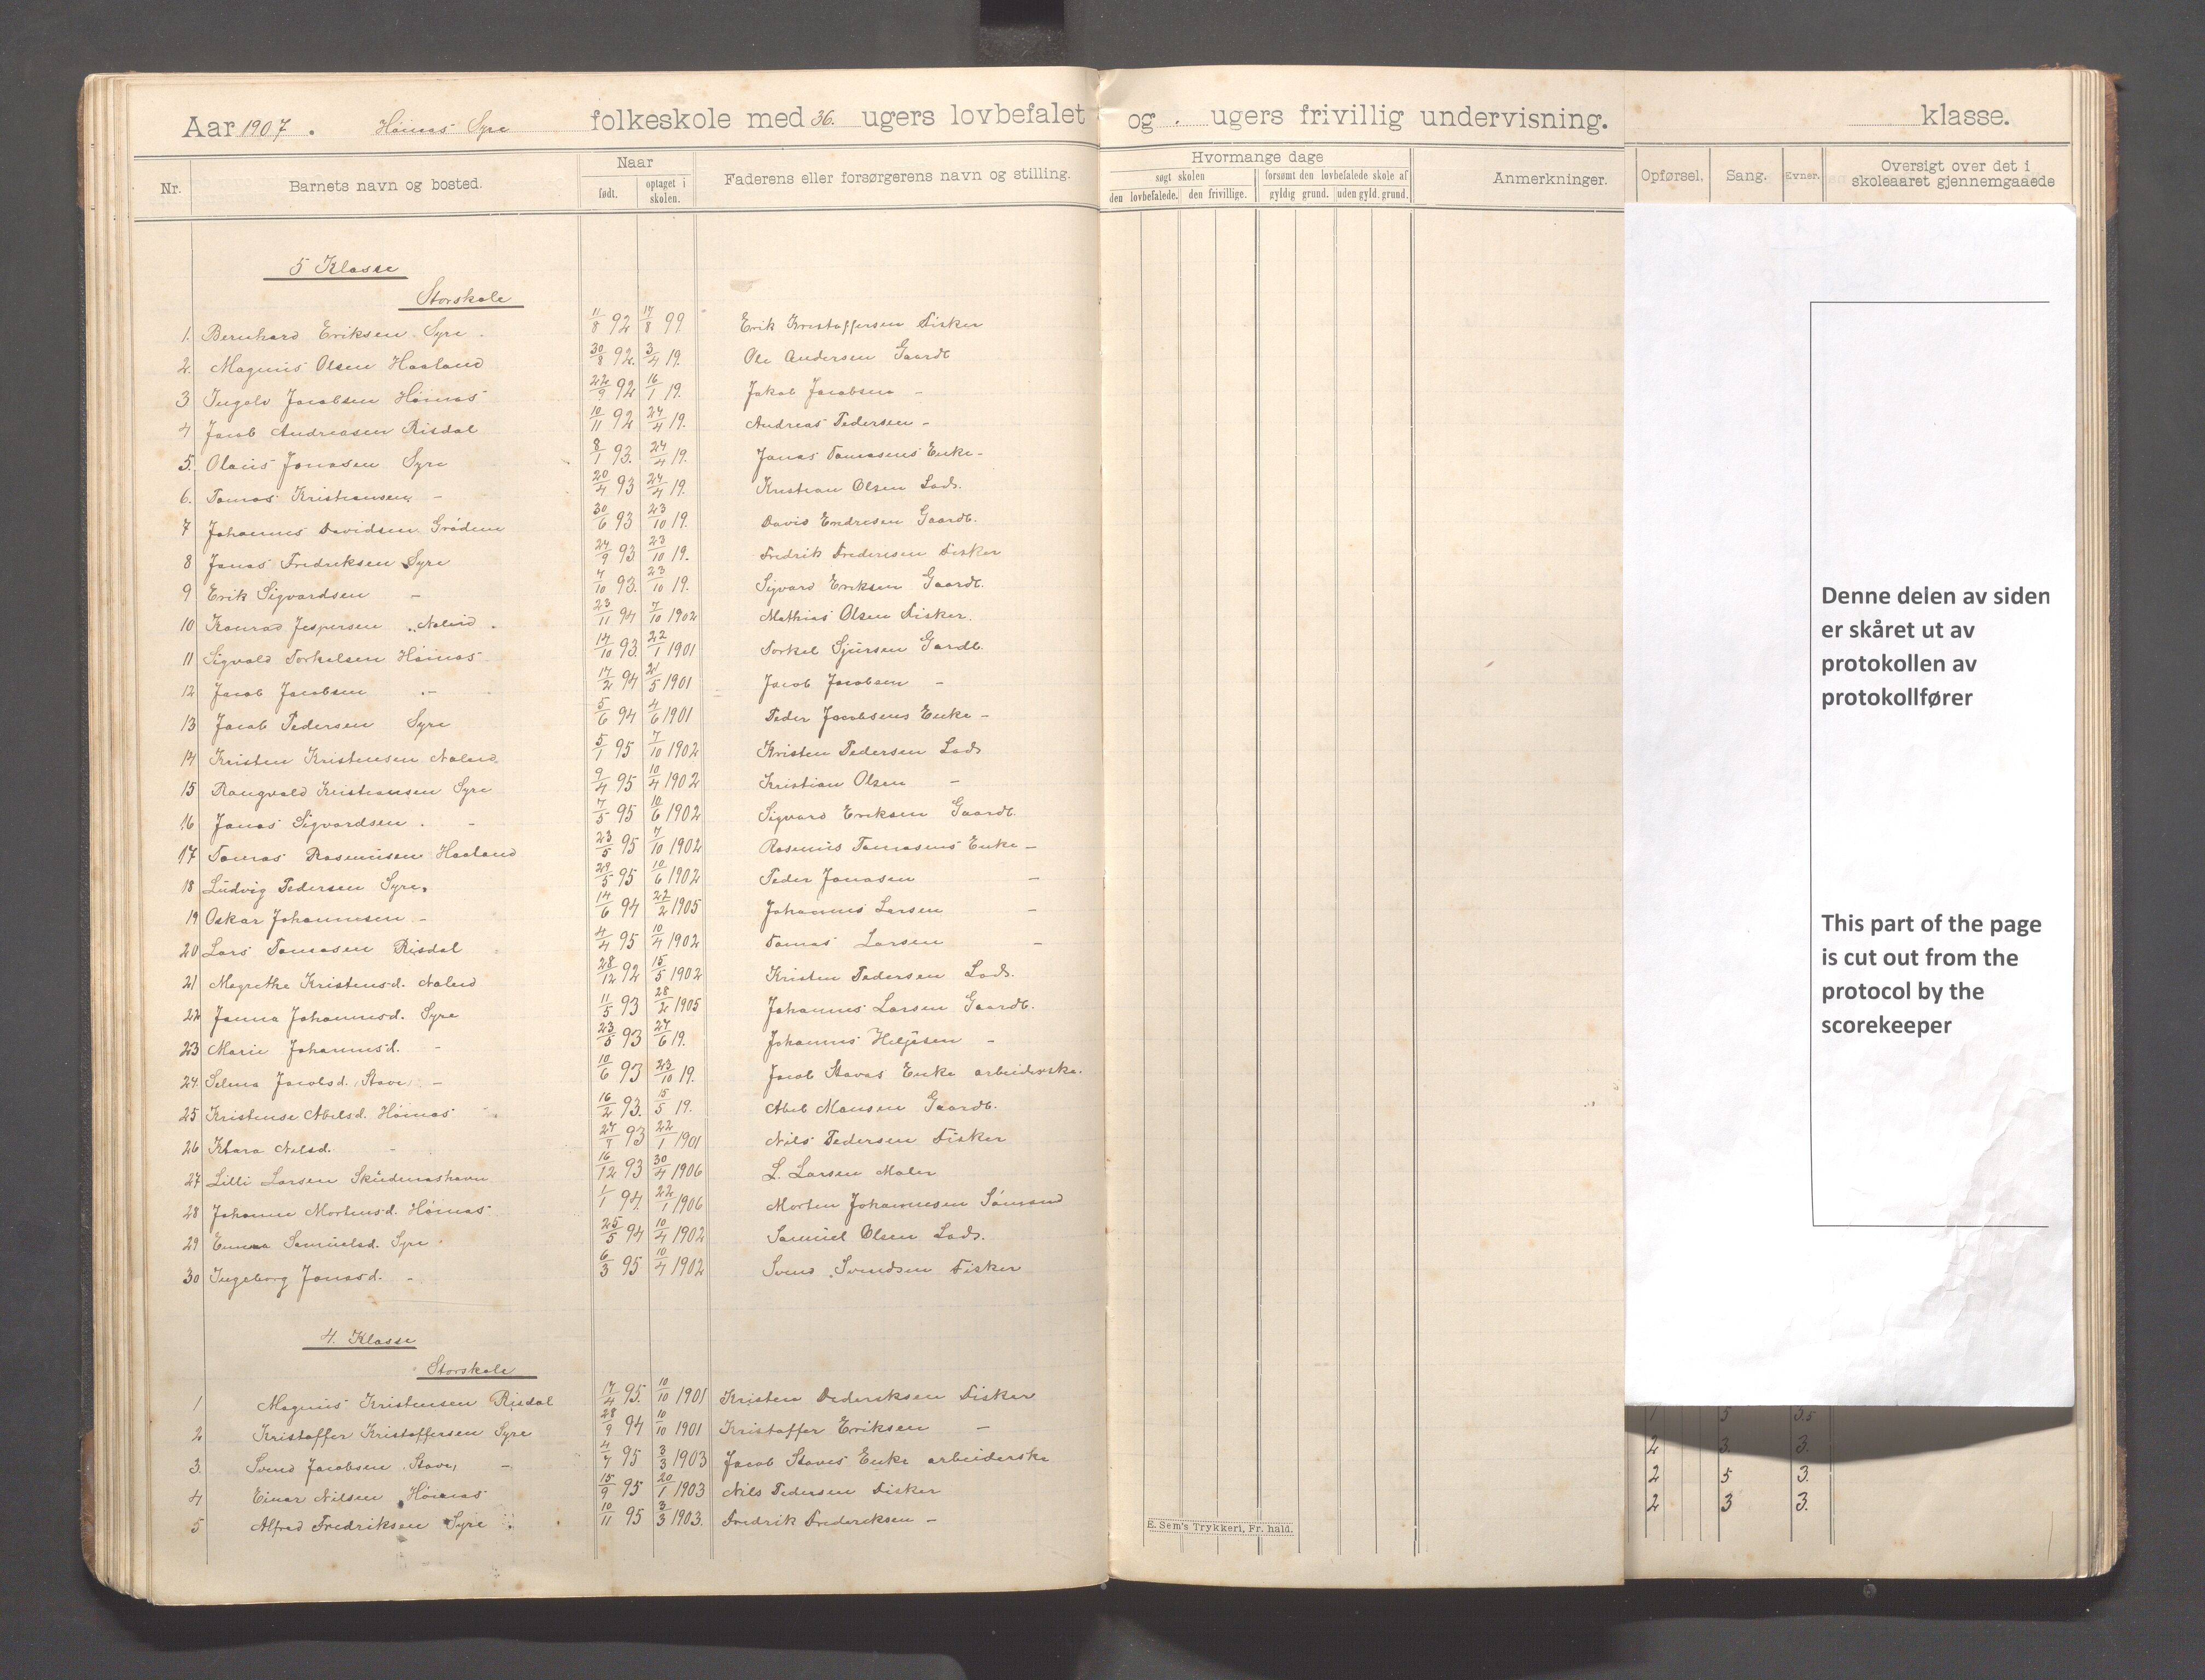 Aar 1907. Høinæs Syre folkeskole med 36. ugers lovbefalet og . ugers frivillig undervisning. klasse.
Nr. Barnets navn og bosted. Naar født. optaget i skolen. Faderens eller forsørgerens navn og stilling. Hvormange dage søgt skolen den lovbefalede. den frivillige. forsømt den lovbefalede skole af gyldig grund. uden gyld. grund. Anmerkninger. Opførsel. Sang. Evner. Oversigt over det i skoleaaret gjennemgaaede
5 Klasse
Storskole
1. Bernhard Eriksen Syre 11/8 92 17/8 99 Erik Kristoffersen Fisker
2. Magnus Olsen Haaland 30/8 92. 3/4 19. Ole Andersen Gaardb
3 Ingolv Jacobsen Høinæs 22/9 92 16/1 19. Jakob Jacobsen -
4 Jacob Andreasen Risdal 10/11 92 24/4 19. Andreas Pedersen -
5. Olaus Jonasen Syre 8/1 93. 24/4 19. Jonas Tomasens Enke -
6. Tomas Kristiansen - 20/4 93 24/4 19. Kristian Olsen Lods.
7 Johannes Davidsen Grødem 30/6 93 23/10 19. David Endresen Gaardb.
8 Jonas Fredriksen Syre 24/9 93 23/10 19. Fredrik Frederesen Fisker
9 Erik Sigvardsen - 4/10 93. 23/10 19. Sigvard Eriksen Gaardb.
10 Konrad Jespersen Nølend 23/11 94 7/10 1902 Mathias Olsen Fisker.
11 Sigvald Torkelsen Høinæs 14/10 93. 22/1 1901 Torkel Sjursen Gardb.
12 Jacob Jacobsen - 17/2 94 21/5 1901 Jacob Jacobsen -
13 Jacob Pedersen Syre 5/6 94 4/6 1901 Peder Jacobsens Enke -
14 Kristen Kristensen Nølend 5/1 95 7/10 1902 Kristen Pedersen Lods
15 Rangvald Kristiansen Syre 9/4 95 10/4 1902 Kristian Olsen -
16 Jonas Sigvardsen. - 7/5 95 10/6 1902 Sigvard Eriksen Gaardb.
17 Tomas Rasmusen Haaland 23/5 95 7/10 1902 Rasmus Tomasens Enke -
18 Ludvig Pedersen Syre. 29/5 95 10/6 1902 Peder Jonasen -
19 Oskar Johannesen - 14/6 94 22/2 1905 Johannes Larsen -
20 Lars Tomasen Risdal 4/4 95 10/4 1902 Tomas Larsen -
21 Magrethe Kristensd. Nølend 28/12 92 15/5 1902 Kristen Pedersen Lods.
22 Janna Johannesd. Syre 11/5 93 28/2 1905 Johannes Larsen Gaardb.
23 Marie Johannesd. - 23/5 93 27/6 19. Johannes Helgesen -
24. Selma Jacobsd. Stave, - 10/6 93 23/10 19. Jacob Staves Enke arbeiderske.
25 Kristense Abelsd. Høinæs 16/2 93. 15/5 19. Abel Monsen Gaardb.
26 Klara Nilsd. - 27/7 93 22/1 1901 Nils Pedersen Fisker
27 Lilli Larsen Skudenæshavn 16/12 93 30/4 1906 L. Larsen Maler
28 Johanne Mortensd. Høinæs 1/1 94. 22/1 1906 Morten Johannesen Sømand
29 Emma Samuelsd. Syre 25/5 94 10/4 1902 Samuel Olsen Lods.
30 Ingeborg Jonasd. - 6/3 95 10/4 1902 Svend Svendsen Fisker
4. Klasse
Storskole
1 Magnus Kristensen Risdal 17/4 95. 10/10 1901 Kristen Dideriksen Fisker
2 Kristoffer Kristoffersen Syre 28/9 94 10/10 1901 Kristoffer Eriksen - 2 3. 3.
3. Svend Jacobsen Stave, - 4/7 95 3/3 1903 Jacob Staves Enke arbeiderske 2 5 3.
4 Einar Nilsen Høinæs 15/9 95 20/1 1903 Nils Pedersen Fisker 2 3 3.
5 Alfred Fredriksen Syre 10/11 95 3/3 1903. Fredrik Frederiksen -
E. Sem's Trykkeri, Fr. hald.
Denne delen av siden
er skåret ut av
protokollen av
protokollfører
This part of the page
is cut out from the
protocol by the
scorekeeper